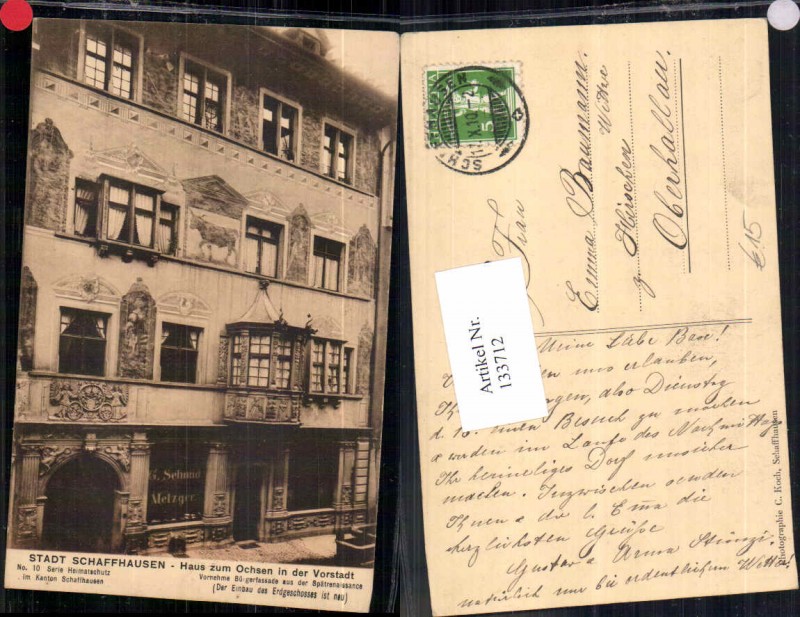 G. Schmid
Metzger
STADT SCHAFFHAUSEN - Haus zum Ochsen in der Vorstadt
No. 10 Serie Heimatschutz
im Kanton Schaffhausen
Vornehme Bürgerfassade aus der Spätrenaissance
(Der Einbau des Erdgeschosses ist neu)
5
Frau
Emma Baumann
Witwe
z. Hirschen
Oberhallau.
€ 15
Artikel Nr.
133712
Meine Liebe Base!
uns erlauben,
also Dienstag
d. Besuch zu machen
& werden im Laufe des Nachmittags
Ihr heimeliges Dorf unsicher
machen. Inzwischen senden
Ihnen & die l. Emma die
herzlichsten Grüße
Gustav & Anna
natürlich nur bei ordentlichem Wetter
Photographie C. Koch, Schaffhausen